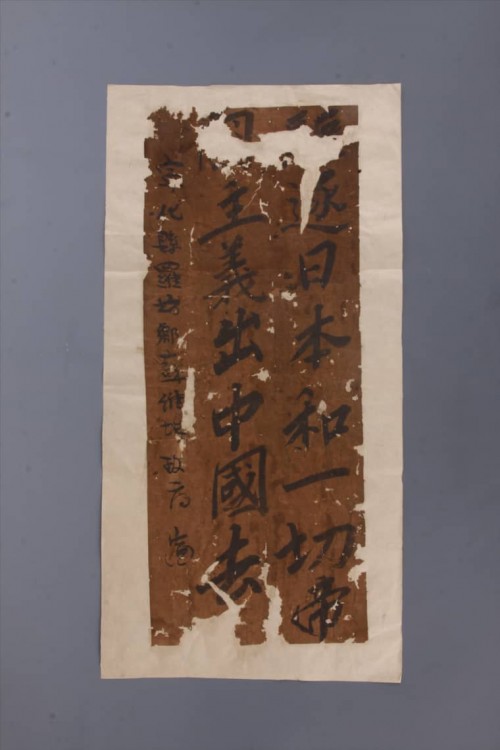 逐日本和一切帝
主義出中國去
化縣羅坊鄉蘇維埃政府